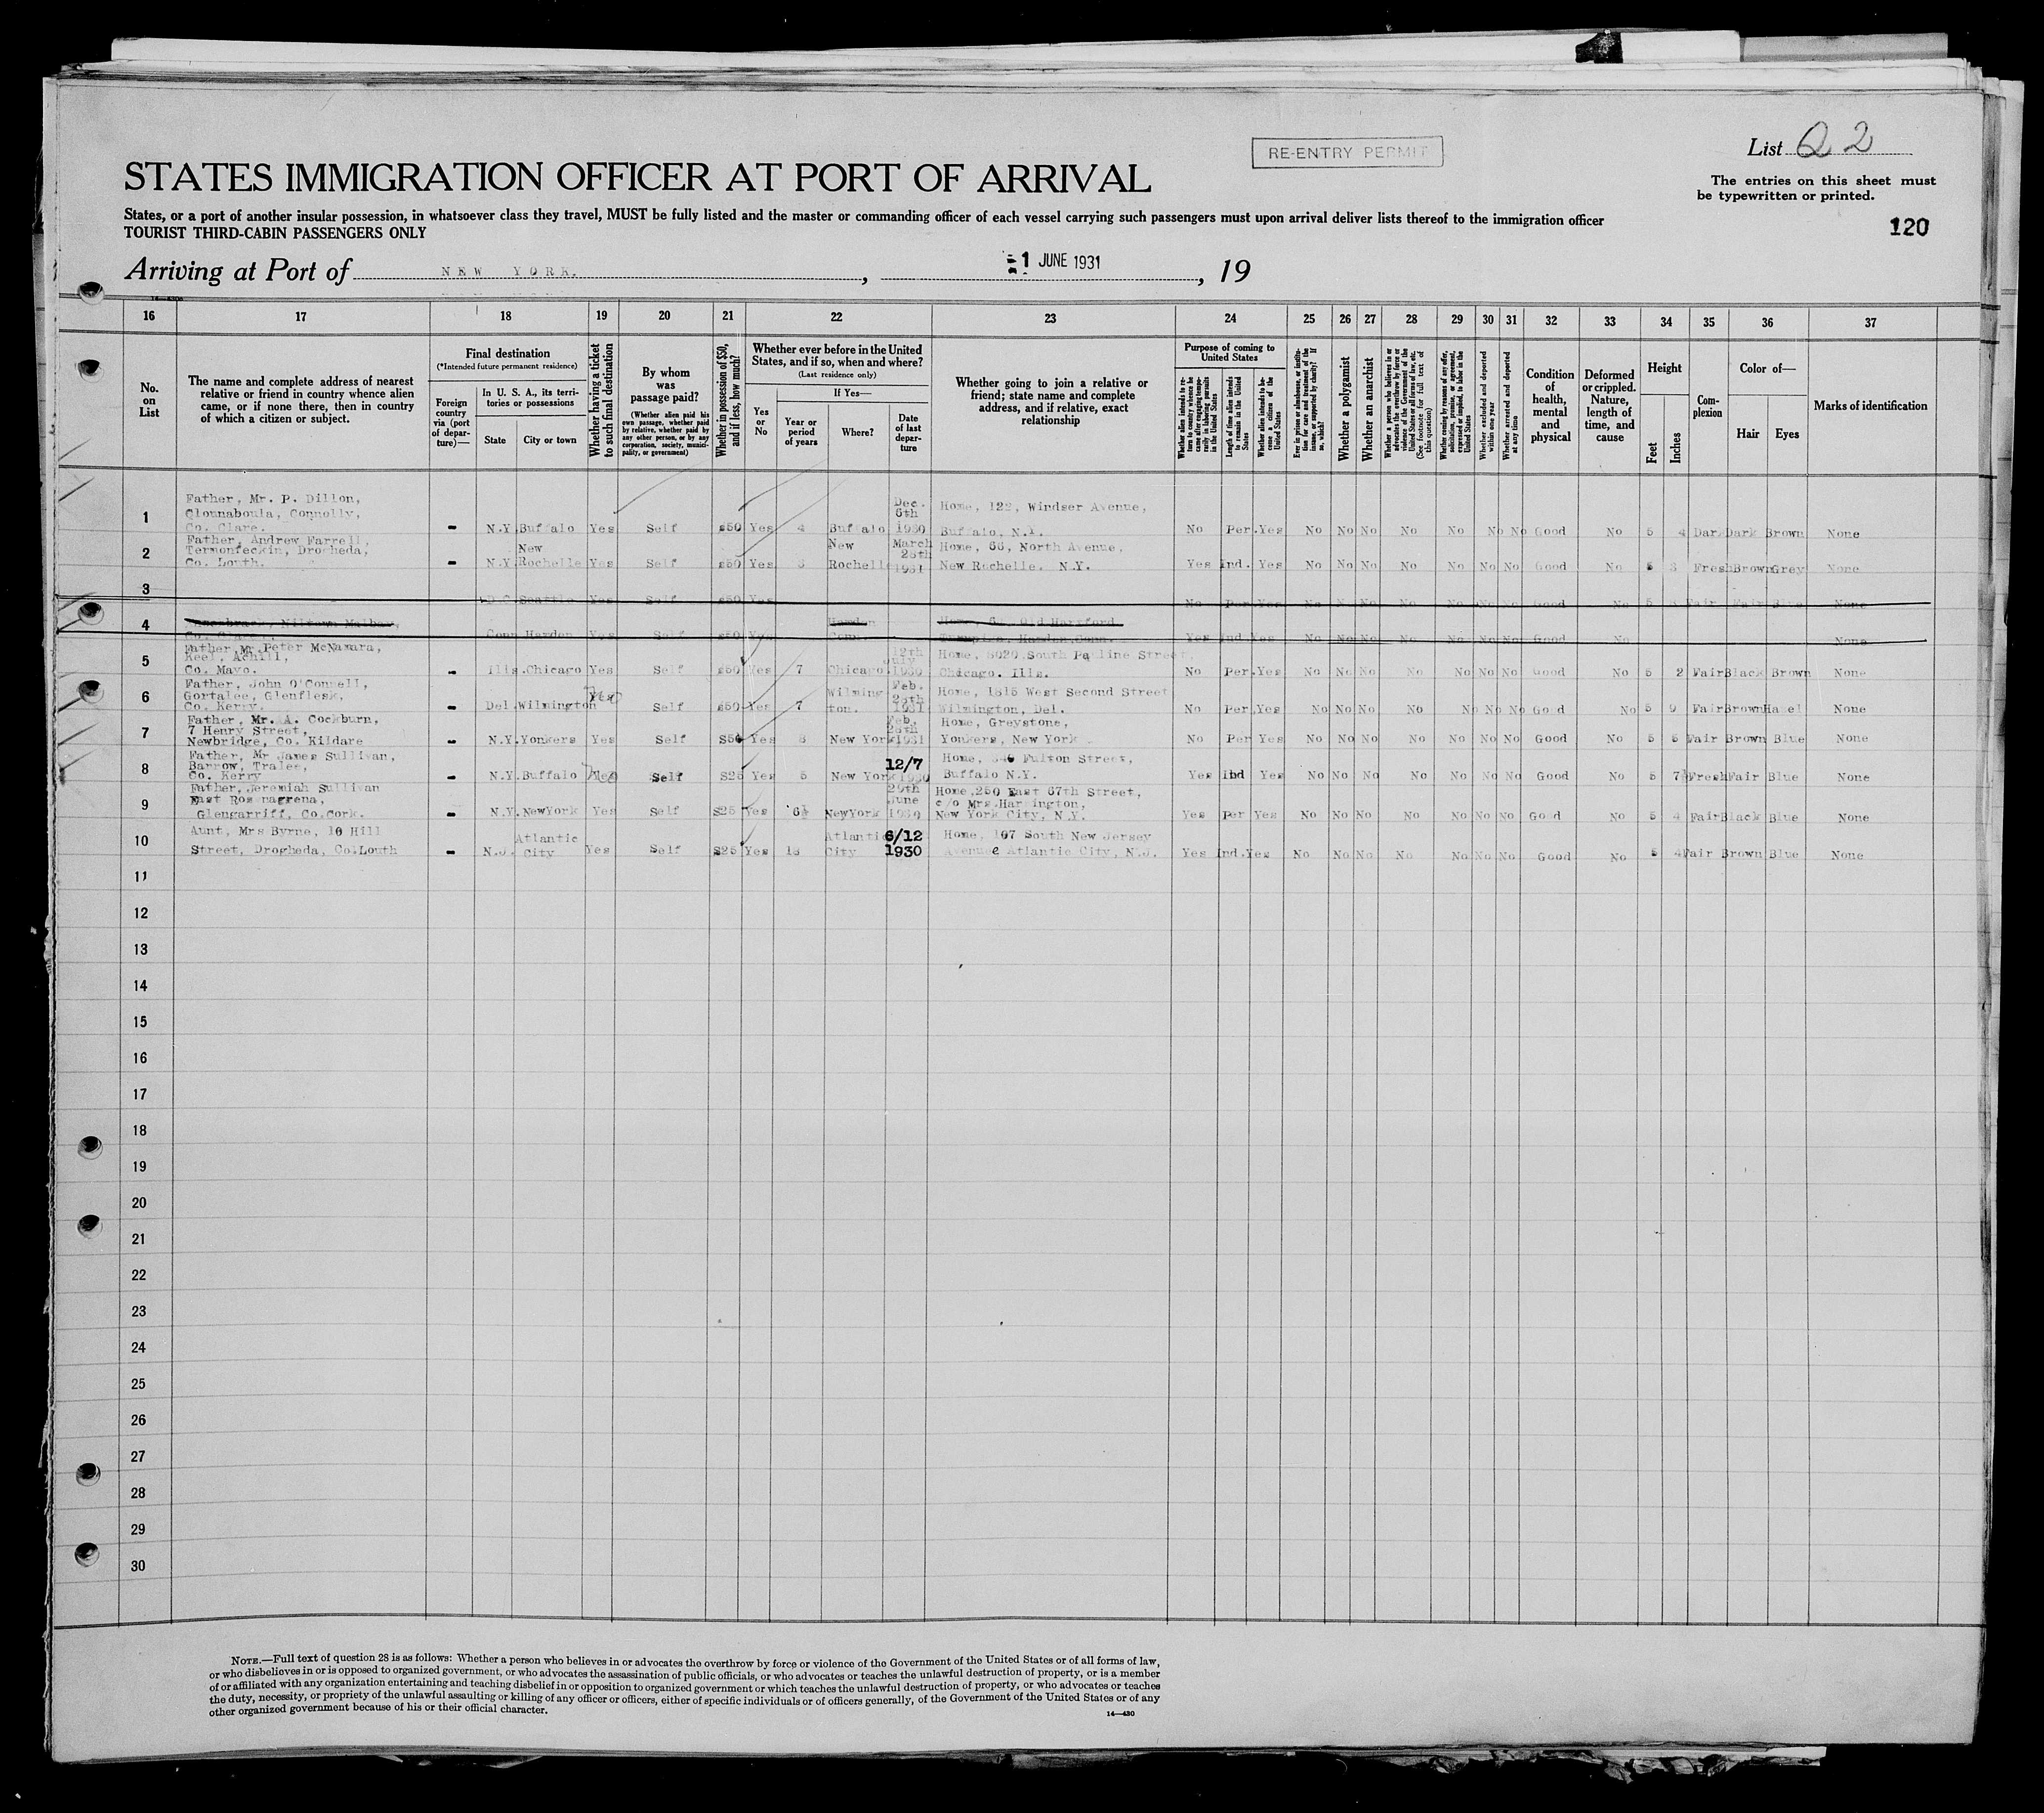 RE-ENTRY PERMIT
List Q 2
STATES IMMIGRATION OFFICER AT PORT OF ARRIVAL
The entries on this sheet must
be typewritten or printed.
States, or a port of another insular possession, in whatsoever class they travel, MUST be fully listed and the master or commanding officer of each vessel carrying such passengers must upon arrival deliver lists thereof to the immigration officer
TOURIST THIRD-CABIN PASSENGERS ONLY
120
Arriving at Port of NEW YORK. , 1 JUNE 1931 , 19
16 17 18 19 20 21 22 23 24 25 26 27 28 29 30 31 32 33 34 35 36 37
No. on List
The name and complete address of nearest relative or friend in country whence alien came, or if none there, then in country of which a citizen or subject.
Final destination
(*Intended future permanent residence)
Foreign country via (port of departure)—
In U. S. A., its territories or possessions
State
City or town
Whether having a ticket to such final destination
By whom was passage paid?
(Whether alien paid his own passage, whether paid by relative, whether paid by any other person, or by any corporation, society, municipality, or government)
Whether in possession of $50, and if less, how much?
Whether ever before in the United States, and if so, when and where?
(Last residence only)
Yes or No
If Yes—
Year or period of years
Where?
Date of last departure
Whether going to join a relative or friend; state name and complete address, and if relative, exact relationship
Purpose of coming to United States
Whether alien intends to return to country whence he came after engaging temporarily in laboring pursuits in the United States
Length of time alien intends to remain in the United States
Whether alien intends to become a citizen of the United States
Ever in prison or almshouse, or institution for care and treatment of the insane, or supported by charity? If so, which?
Whether a polygamist
Whether an anarchist
Whether a person who believes in or advocates the overthrow by force or violence of the Government of the United States or all forms of law, etc. (See footnote for full text of this question)
Whether coming by reason of any offer, solicitation, promise, or agreement, expressed or implied, to labor in the United States
Whether excluded and deported within one year
Whether arrested and deported at any time
Condition of health, mental and physical
Deformed or crippled. Nature, length of time, and cause
Height
Feet
Inches
Complexion
Color of—
Hair
Eyes
Marks of identification
1 Father, Mr. P. Dillon,
Clounaboula, Connolly,
Co. Clare. - N.Y. Buffalo Yes Self $50 Yes 4 Buffalo Dec. 6th 1930 Home, 122, Windser Avenue, Buffalo, N.Y. No Per. Yes No No No No No No No Good No 5 4 Dark Dark Brown None
2 Father, Andrew Farrell,
Termonfeckin, Drogheda,
Co. Louth. - N.Y. New Rochelle Yes Self $50 Yes 3 New Rochelle March 25th 1931 Home, 66, North Avenue, New Rochelle. N.Y. Yes Ind. Yes No No No No No No No Good No 5 3 Fresh Brown Grey None
3 D.C. Seattle Yes Self $50 Yes No Per Yes No No No No No No No Good No 5 Fair Fair Blue None
4 Miltown Malbay,
Co. Clare. Conn Hamden Yes Self $50 Yes Hamden Conn. Home, Old Hartford Turnpike, Hamden, Conn. Yes Ind Yes No No No No No No No Good No None
5 Father, Mr Peter McNamara,
Keel, Achill,
Co. Mayo. - Ills. Chicago Yes Self $50 Yes 7 Chicago. 12th July 1930 Home, 8020 South Pauline Street, Chicago. Ills. No Per Yes No No No No No No No Good No 5 2 Fair Black Brown None
6 Father, John O'Connell,
Gortalee, Glenflesk,
Co. Kerry. - Del. Wilmington Yes No Self $50 Yes 7 Wilmington. Feb. 28th 1931 Home, 1815 West Second Street Wilmington, Del. No Per Yes No No No No No No No Good No 5 9 Fair Brown Hazel None
7 Father, Mr. A. Cockburn,
7 Henry Street,
Newbridge, Co. Kildare - N.Y. Yonkers Yes Self $50 Yes 8 New York Feb. 28th 1931 Home, Greystone, Yonkers, New York No Per Yes No No No No No No No Good No 5 5 Fair Brown Blue None
8 Father, Mr James Sullivan,
Barrow, Tralee,
Co. Kerry - N.Y. Buffalo No Self $25 Yes 5 New York 12/7 1930 Home, 346 Fulton Street, Buffalo N.Y. Yes Ind Yes No No No No No No No Good No 5 7½ Fresh Fair Blue None
9 Father, Jeremiah Sullivan
East Rosnagrena,
Glengarriff, Co. Cork. - N.Y. NewYork Yes Self $25 Yes 6½ NewYork 29th June 1930 Home, 250 East 67th Street, c/o Mrs. Harrington, New York City, N.Y. Yes Per Yes No No No No No No No Good No 5 4 Fair Black Blue None
10 Aunt, Mrs Byrne, 10 Hill
Street, Drogheda, Co. Louth - N.J. Atlantic City Yes Self $25 Yes 18 Atlantic City 6/12 1930 Home, 107 South New Jersey Avenue Atlantic City, N.J. Yes Ind. Yes No No No No No No No Good No 5 4 Fair Brown Blue None
11
12
13
14
15
16
17
18
19
20
21
22
23
24
25
26
27
28
29
30
NOTE.—Full text of question 28 is as follows: Whether a person who believes in or advocates the overthrow by force or violence of the Government of the United States or of all forms of law,
or who disbelieves in or is opposed to organized government, or who advocates the assassination of public officials, or who advocates or teaches the unlawful destruction of property, or is a member
of or affiliated with any organization entertaining and teaching disbelief in or opposition to organized government or which teaches the unlawful destruction of property, or who advocates or teaches
the duty, necessity, or propriety of the unlawful assaulting or killing of any officer or officers, either of specific individuals or of officers generally, of the Government of the United States or of any
other organized government because of his or their official character.
14—430